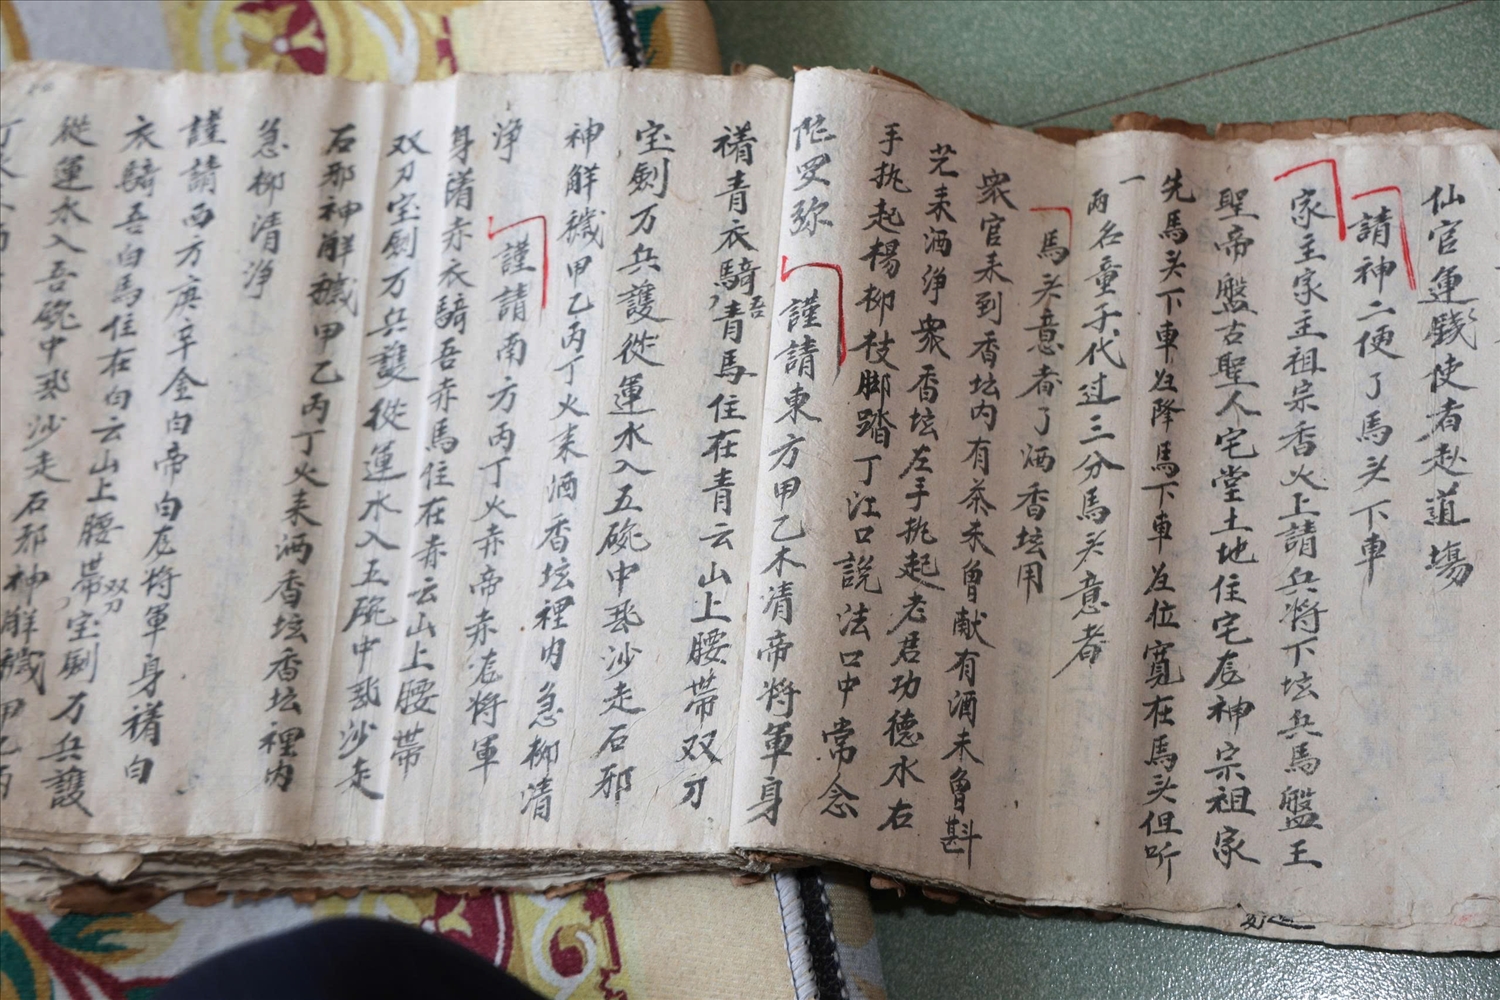 仙官運錢使者赴道場
請神二便了馬头下車
家主家主祖宗香火上請兵将下坛兵馬盤王
聖帝盤古聖人宅堂土地住宅龙神宗祖家
先馬头下車降馬下車位寬在馬头但听
一
两名童子代过三分馬头意者
馬头意者了洒香坛用
衆官来到香坛内有茶未曾献有酒未曾斟
先来洒净衆香坛左手执起老君功德水右
手执起楊柳枝脚踏丁江口説法口中常念
陀罗弥
謹請東方甲乙木清帝将軍身
褙青衣騎吾青馬住在青云山上腰带双刀
宝劍万兵護従運水入五碗中飛沙走石邪
神觧穢甲乙丙丁火来洒香坛裡内急柳清
净
謹請南方丙丁火赤帝赤龙将軍
身褙赤衣騎吾赤馬住在赤云山上腰带
双刀宝劍万兵護従運水入五碗中飛沙走
石邪神觧穢甲乙丙丁火来洒香坛香坛裡内
急柳清净
謹請西方庚辛金白帝白龙将軍身褙白
衣騎吾白馬住在白云山上腰带双刀宝劍万兵護
從運水入吾碗中飛沙走石邪神觧穢甲乙丙